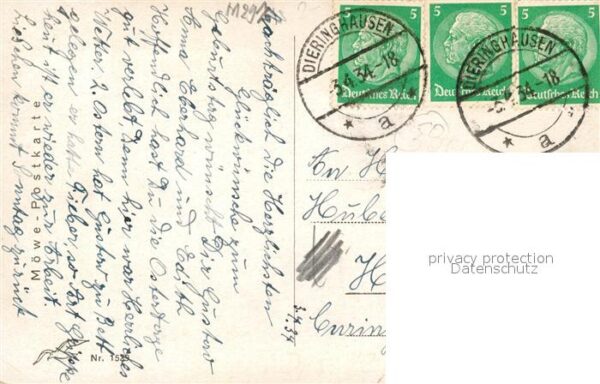 M291
Nachträglich die Herzlichsten
Glückwünsche zum
Geburtstag wünscht Dir Gustav
Anna Eberhard und Edith
Hoffentlich hast Du die Ostertage
gut verlebt, denn hier war Herrliches
Wetter. 2. Ostern hat Gustav zu Bett
gelegen er hatte Fieber, so Art Grippe
heut ist er wieder zur Arbeit.
kommt Sonntag zurück
3.4.34
Möwe-Postkarte
Nr. 1529
DIERINGHAUSEN
.4.34.-18
a
5
Deutsches Reich
5
Deutsches Reich
5
Deutsches Reich
DIERINGHAUSEN
34-18
a
An H
Huba
H
privacy protection
Datenschutz